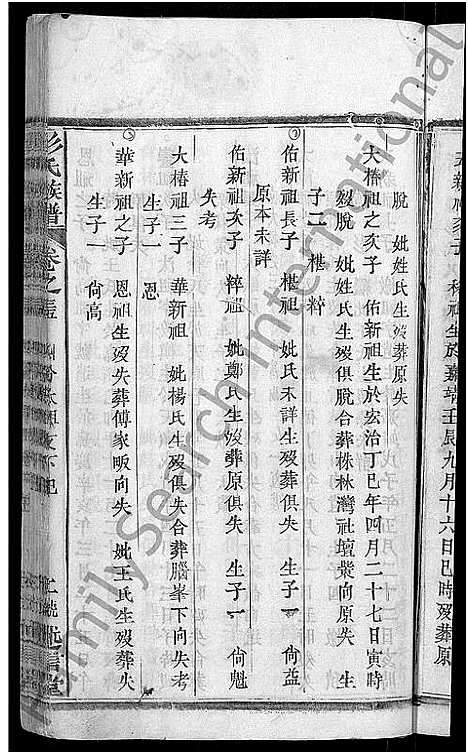 五新祖次子
祖生於嘉靖壬辰九月十六日巳時歿葬原
脫 妣姓氏生歿葬原失
大椿祖之次子 佑新祖生於宏治丁巳年四月二十七日寅時
歿脫 妣姓氏生歿俱脫合葬株林灣社壇䂖向原失 生
子二 椹 粹
佑新祖長子 椹祖 妣氏未詳生歿葬 生子一 尙益
原本未詳
佑新祖次子 粹祖 妣鄭氏生歿葬原俱失 生子一 尙魁
失考
大椿祖三子 華新祖 妣楊氏生歿俱失合葬腦峯下向失考
生子一 恩
華新祖之子 恩祖生歿失葬傅家畈向失 妣王氏生歿葬失
生子一 尙高
彭氏族譜 卷之
FamilySearch International